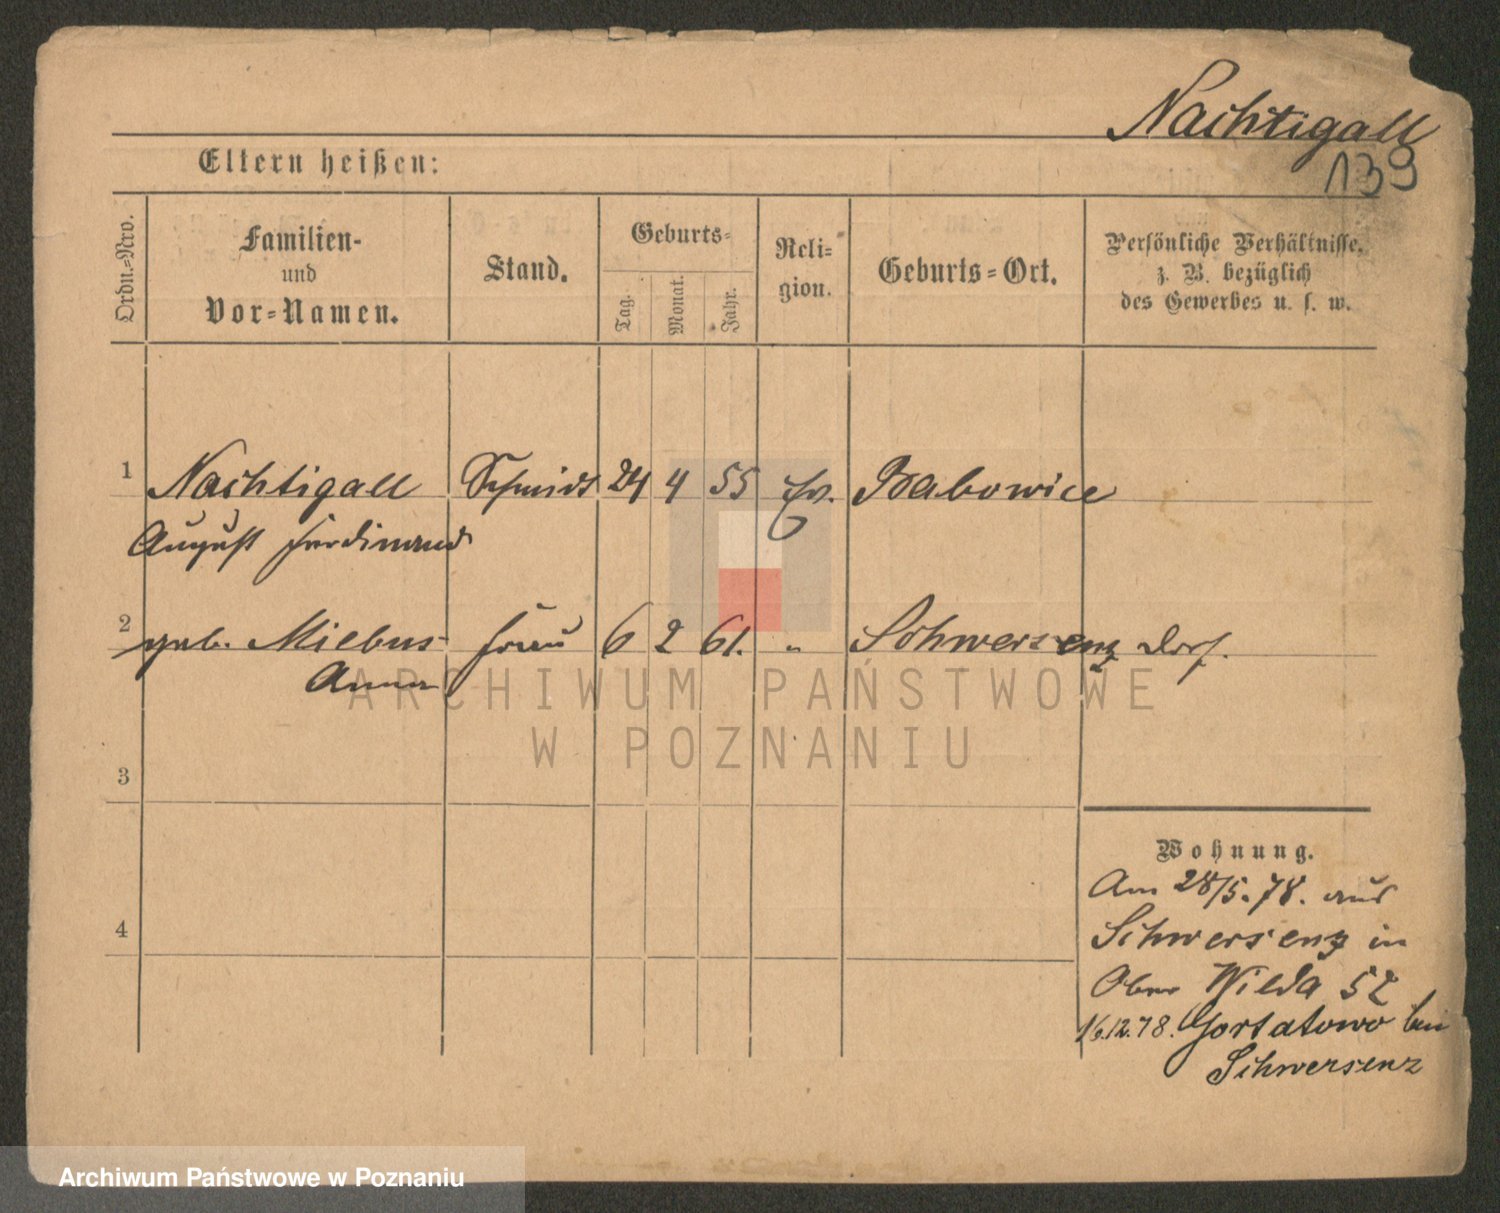 Nachtigall
139
Eltern heißen:
Ordn.-Nro.
Familien-
und
Vor-Namen.
Stand.
Geburts-
Tag.
Monat.
Jahr.
Reli-
gion.
Geburts-Ort.
Persönliche Verhältnisse,
z. B. bezüglich
des Gewerbes u. s. w.
1 Nachtigall Schmidt 24 4 55 Ev. Babowice
August Ferdinand
2 geb. Miebus Frau 6 2 61. " Schwersenz Dorf.
Anna
3
4
Wohnung.
Am 28/5.78. aus
Schwersenz in
Ober Wilda 52
12.78. Gortatowo bei
Schwersenz
ARCHIWUM PAŃSTWOWE
W POZNANIU
Archiwum Państwowe w Poznaniu